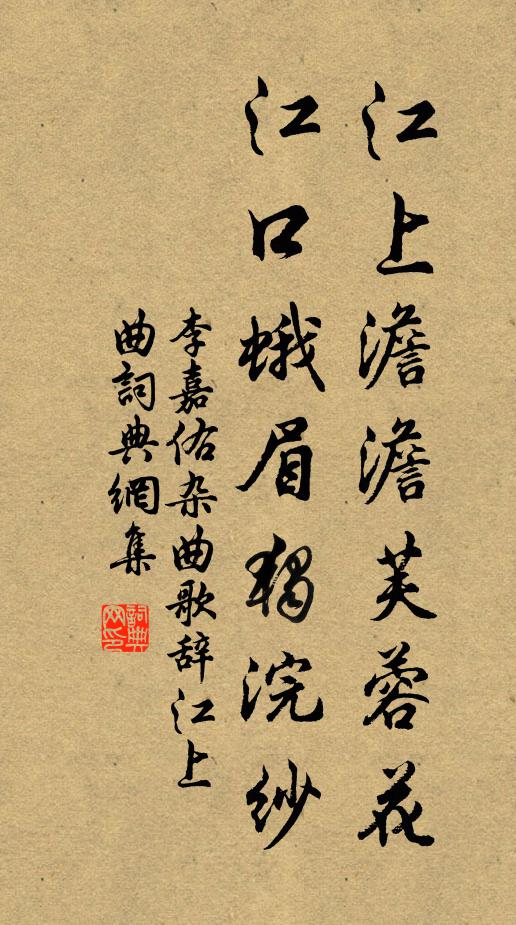 江上澹澹芙蓉花
江口蛾眉独浣紗
李嘉佑杂曲歌辞江上
曲詞典網集
詞典网印